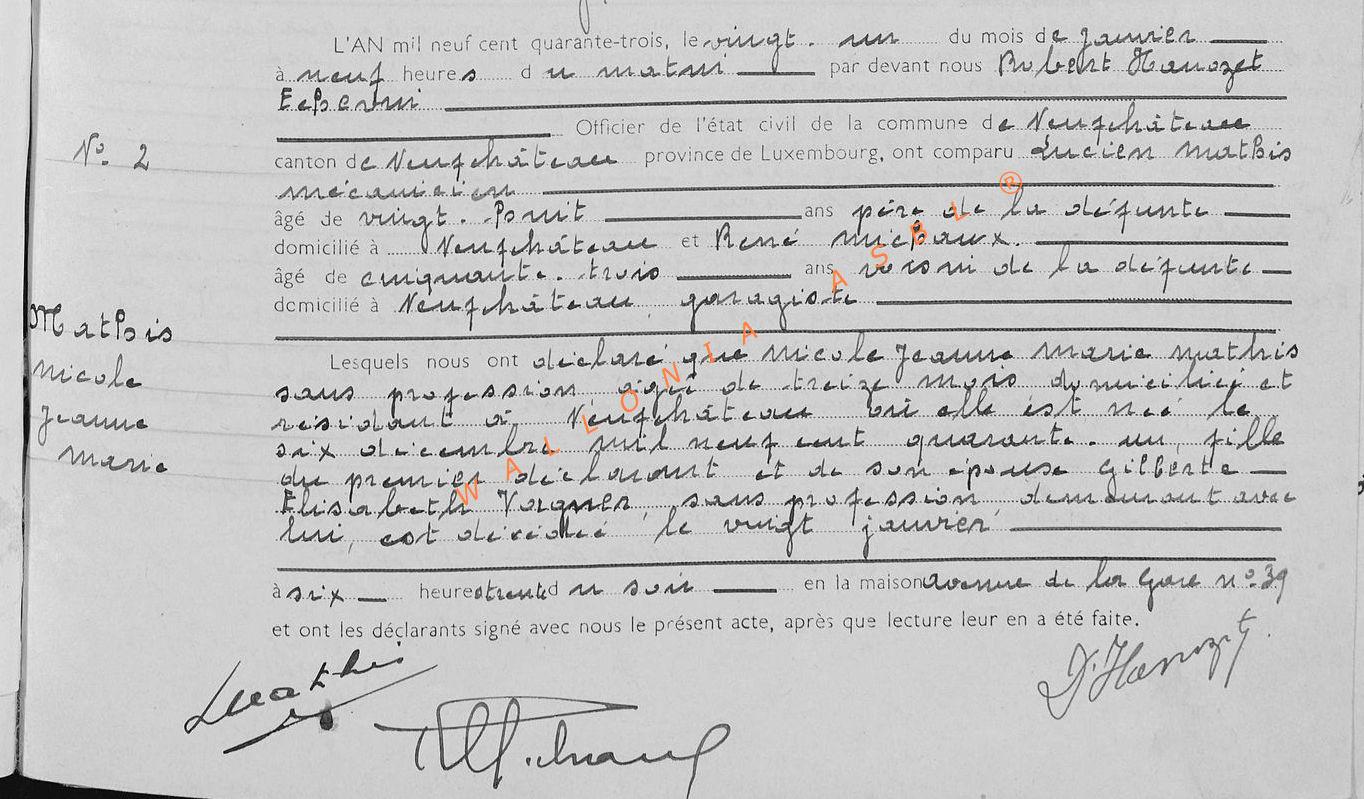 L'AN mil neuf cent quarante-trois, le vingt. un du mois de janvier
à neuf heures du matin par devant nous Robert Hanozet
Echevin
Officier de l'état civil de la commune de Neufchâteau
No. 2
canton de Neufchâteau province de Luxembourg, ont comparu Lucien Mathis
mécanicien
âgé de vingt. huit ans père de la défunte
domicilié à Neufchâteau et René Michaux.
âgé de cinquante. trois ans voisin de la défunte
domicilié à Neufchâteau, garagiste
Mathis
Nicole
Jeanne
Marie
Lesquels nous ont déclaré que Nicole Jeanne Marie Mathis
sans profession, âgé de treize mois domicilié et
résidant à Neufchâteau où elle est née le
six décembre mil neuf cent quarante. un, fille
du premier déclarant et de son épouse Gilberte
Elisabeth, sans profession, demeurant avec
lui, est décédée le vingt janvier
à six heures trente du soir en la maison avenue de la Gare no. 39
et ont les déclarants signé avec nous le présent acte, après que lecture leur en a été faite.
WALLONIA ASBL ®
Mathis
Dr Hanozet